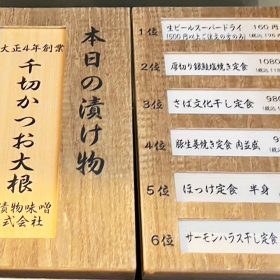 本日の漬け物
大正4年創業
千切かつお大根
漬物味噌
式会社
1位 生ビールスーパードライ 160円
1500円以上ご注文の方のみ
2位 厚切り銀鮭塩焼き定食 1080
3位 さば文化干し定食 98
4位 豚生姜焼き定食 肉並盛
5位 ほっけ定食 半身
6位 サーモンハラス干し定食